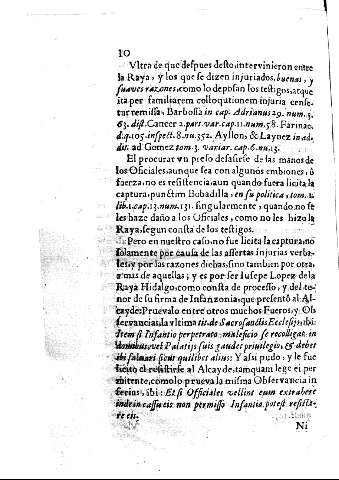 10
Vltra de que despues desto, intervinieron entre
la Raya, y los que se dizen injuriados, buenas, y
suaves razones, como lo deposan los testigos, atque
ita per familiarem colloqutionem injuria cense-
tur remissa, Barbosa in cap. Adrianus 29. num. 3.
63. dist. Cancer 2. part. var. cap. 11. num. 58. Farinac.
d. q. 105. inspect. 8. nu. 352. Ayllon, & Laynez in ad-
dis. ad Gomez tom. 3. variar. cap. 6. nu. 13.
El procurar vn preso desasirse de las manos de
los Oficiales, aunque sea con algunos embiones, ò
fuerza, no es resistencia, aun quando fuera licita la
captura, punctim Bobadilla, en su politica, tom. 2.
lib. 1. cap. 13. num. 131. singularmente, quando no se
les haze daño a los Oficiales, como no les hizo la
Raya, segun consta de los testigos.
Pero en nuestro caso, no fue licita la captura, no
solamente por causa de las ofertas injurias verba-
les, y por las razones dichas, sino tambien por otra,
a mas de aquellas; y es por ser Iusepe Lopez de la
Raya Hidalgo, como consta de processo, y del te-
nor de su firma de Infanzonia, que presentò al Al-
cayde: Pruevalo entre otros muchos Fueros, y Ob
servancias, la vltima tit. de Sacrosanctis Ecclesijs, ibi:
Item si Infantio perpetrato maleficio se recolligat in
domibus, vel Palatijs suis gaudet privilegio, & debet
ibi salvari sicut quilibet alius: Y asi pudo, y le fue
licito el resistirse al Alcayde, tamquam lege ei per
mitente, como lo prueva la misma Observancia in
ferius, ibi: Et si Officiales vellint eum extrahere
inde in casu eis non permisso Infantio potest resiste-
re eis.
Ni